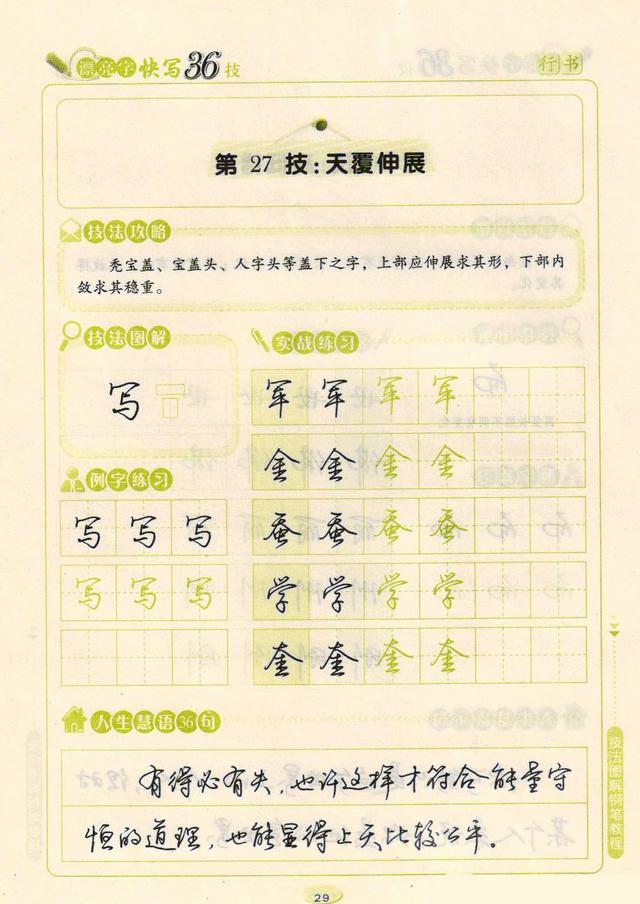 漂亮字快写36技
行书
第 27 技:天覆伸展
技法攻略
秃宝盖、宝盖头、人字头等盖下之字，上部应伸展求其形，下部内
敛求其稳重。
技法图解
写
例字练习
写 写 写
写 写 写
实战练习
军 军 军 军
金 金 金 金
蚕 蚕 蚕 蚕
学 学 学 学
奎 奎 奎 奎
人生慧语36句
有得必有失，也许这样才符合能量守
恒的道理，也能显得上天比较公平。
技法图解钢笔教程
29